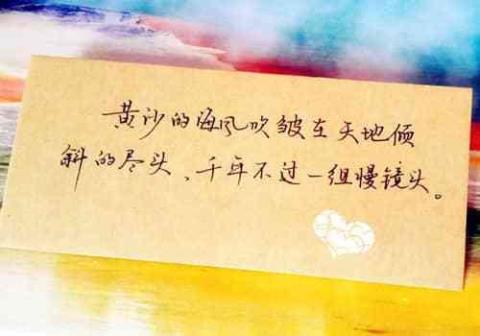 黄沙的海风吹皱在天地倾
斜的尽头、千年不过一组慢镜头。